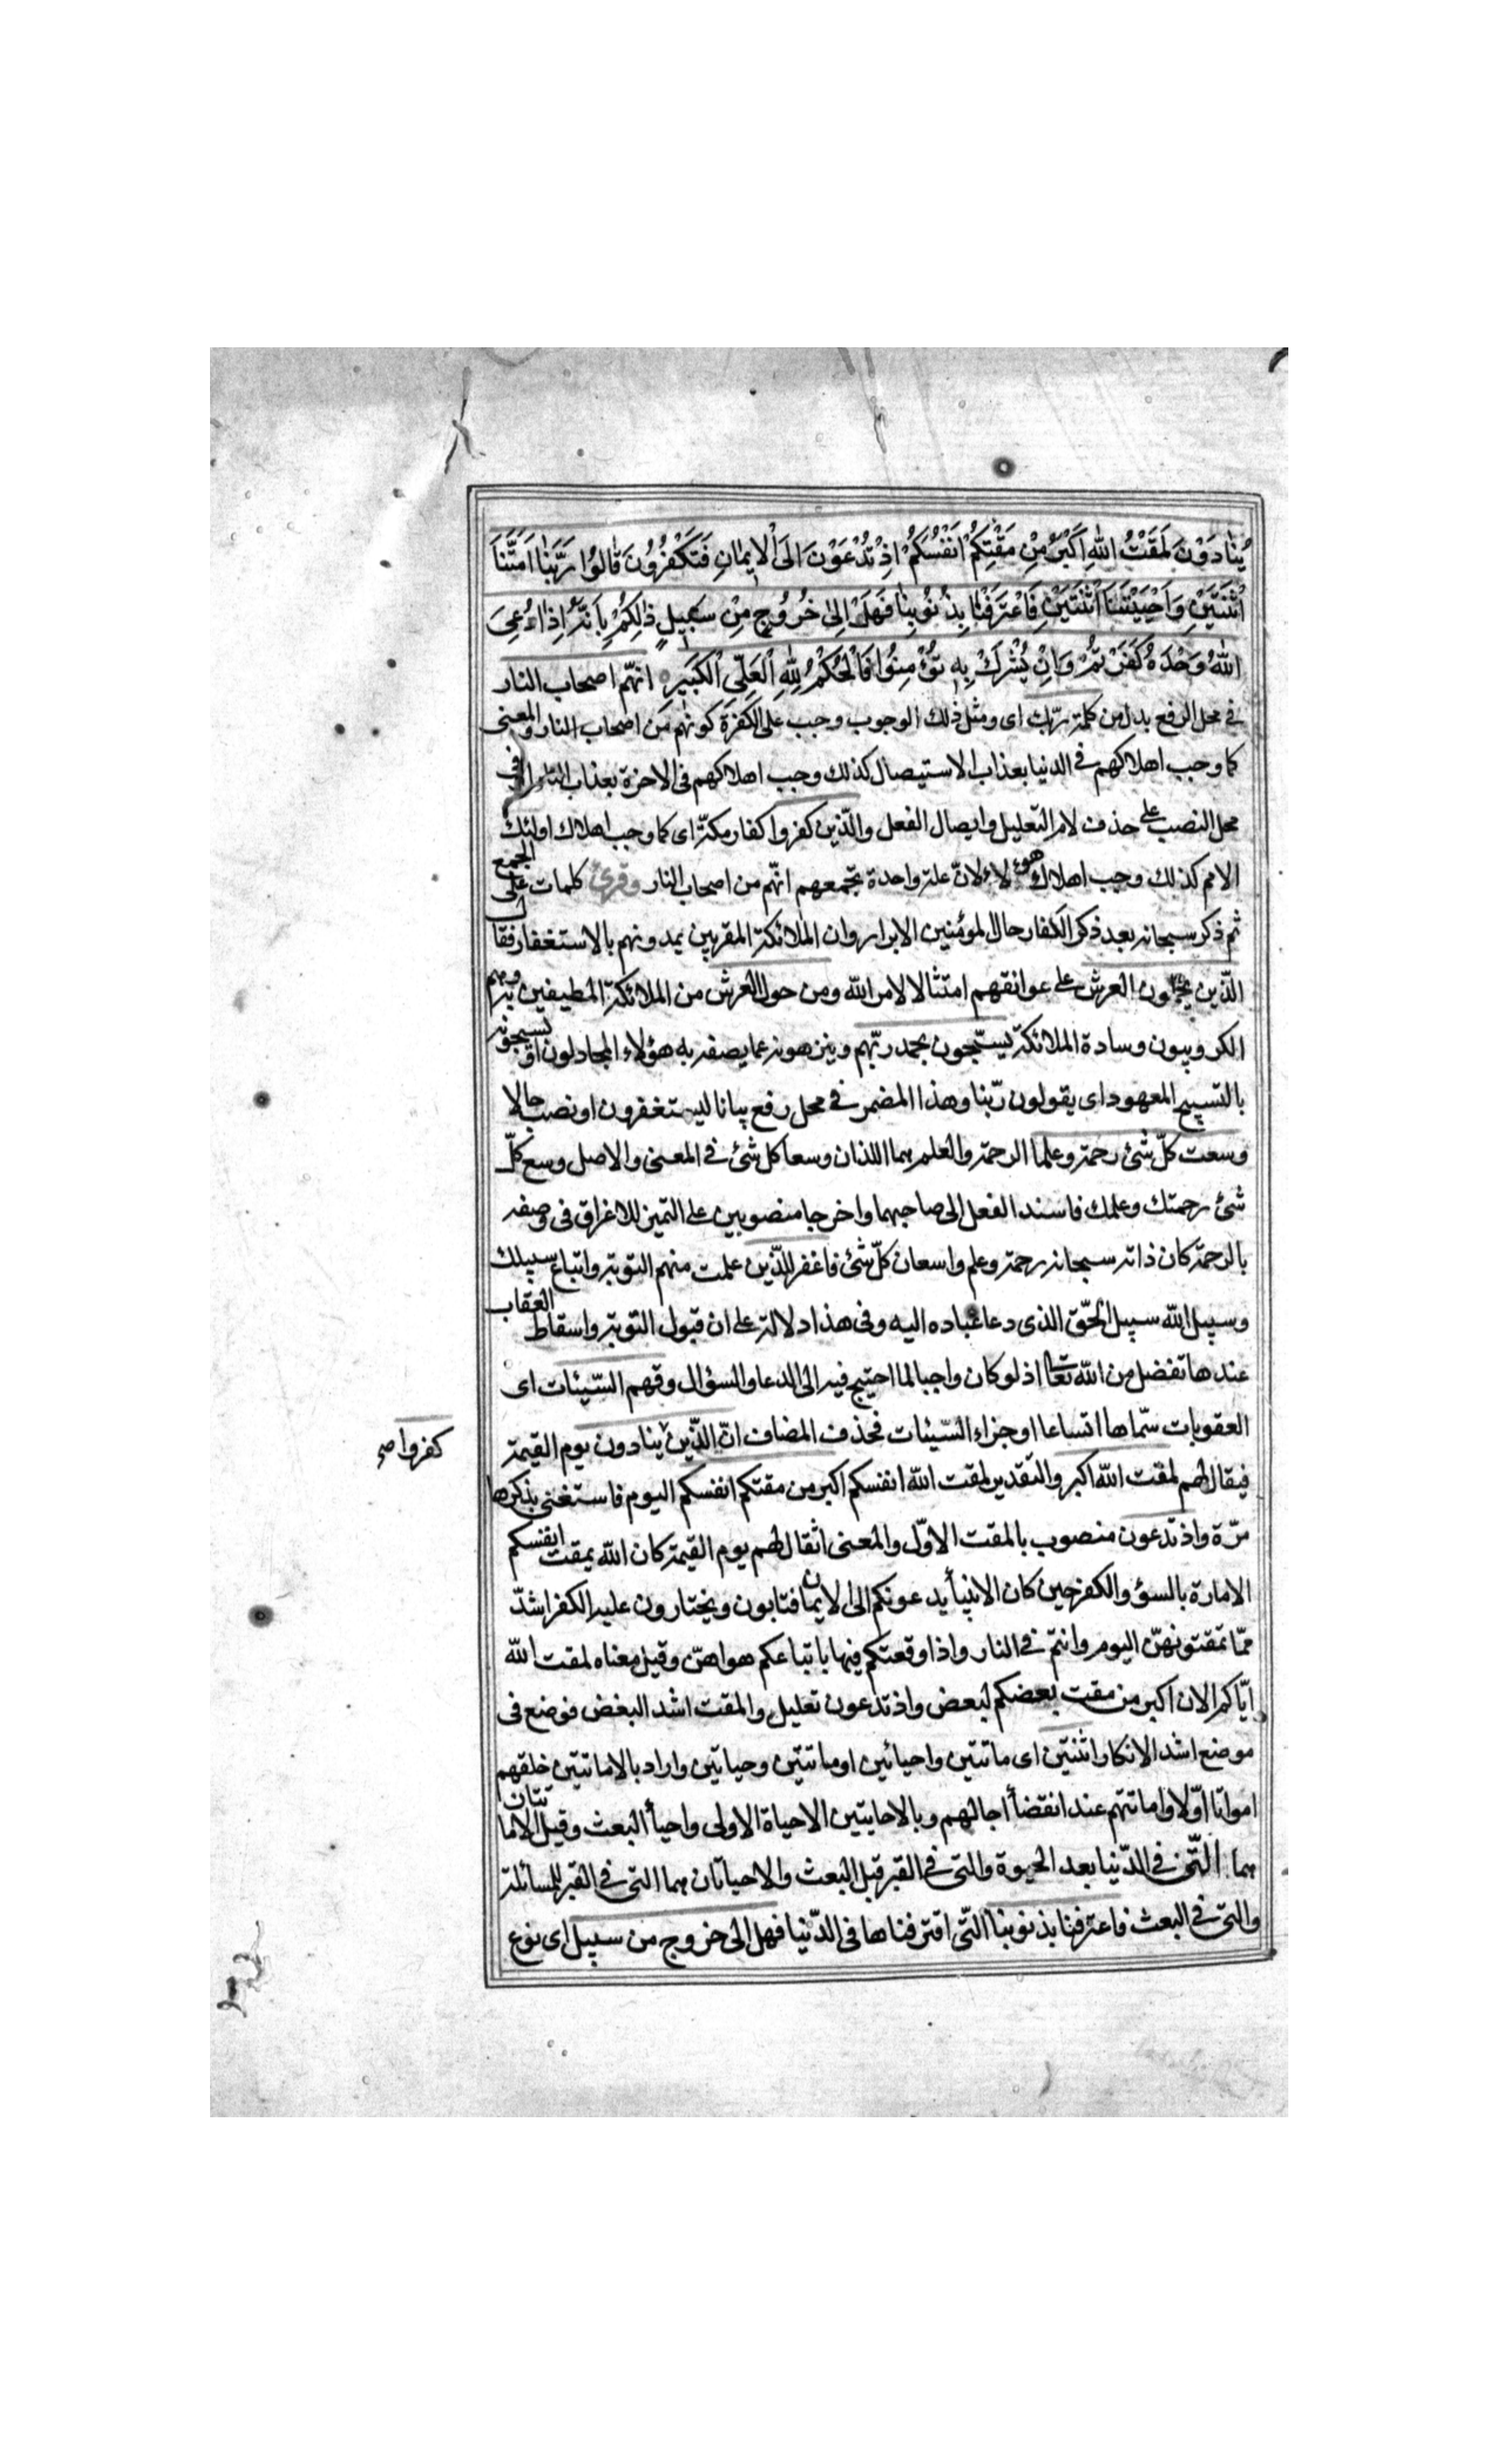 يُنَادَوْنَ لَمَقْتُ اللهِ اَكْبَرُ مِنْ مَقْتِكُمْ اَنْفُسَكُمْ اِذْ تُدْعَوْنَ اِلَى الْاِيمَانِ فَتَكْفُرُونَ قَالُوا رَبَّنَا اَمَتَّنَا
اثْنَتَيْنِ وَاَحْيَيْتَنَا اثْنَتَيْنِ فَاعْتَرَفْنَا بِذُنُوبِنَا فَهَلْ اِلى خُرُوجٍ مِنْ سَبِيلٍ ذلِكُمْ بِاَنَّهُ اِذَا دُعِيَ
اللهُ وَحْدَهُ كَفَرْتُمْ وَاِنْ يُشْرَكْ بِهِ تُؤْمِنُوا فَالْحُكْمُ لِلّهِ الْعَلِيِّ الْكَبِيرِ انهّم اصحاب النار
في محل الرفع بدل من كلمة ربّك اى ومثل ذلك الوجوب وجب على الكفرة كونهم من اصحاب النار والمعنى
كما وجب اهلاكهم في الدنيا بعذاب الاستيصال كذلك وجب اهلاكهم فى الاخرة بعذاب النار او في
محل النصب على حذف لام التعليل وايصال الفعل والّذين كفروا كفار مكة اى كما وجب اهلاك اولئك
الامم كذلك وجب اهلاك هؤلاء لانّ علة واحدة تجمعهم انّهم من اصحاب النار وقرئ كلمات على الجمع
ثم ذكر سبحانه بعد ذكر الكفار حال المؤمنين الابرار وان الملائكة المقربين يمدونهم بالاستغفار فقال
الّذين يحملون العرش على عواتقهم امتثالا لامر الله ومن حول العرش من الملائكة المطيفين به وهم
الكروبيون وسادة الملائكة يسبّحون بحمد ربّهم وينزهونه عما يصفه به هؤلاء المجادلون او يسبحونه
بالتسبيح المعهود اى يقولون ربّنا وهذا المضمر في محل رفع بيانا ليستغفرون او نصب حالا
وسعت كلّ شئ رحمة وعلما الرحمة والعلم هما اللذان وسعا كل شئ في المعنى والاصل وسع كلّ
شئ رحمتك وعلمك فاسند الفعل الى صاحبهما واخرجا منصوبين على التميز للاغراق فى وصفه
بالرحمة كان ذاته سبحانه رحمة وعلم واسعان كلّ شئ فاغفر للّذين علمت منهم التوبة واتباع سبيلك
وسبيل الله سبيل الحّق الذى دعا عباده اليه وفى هذا دلالة على ان قبول التوبة واسقاط العقاب
عندها تفضل من الله تعالى اذ لو كان واجبا لما احتيج فيه الى الدعا والسؤال وقهم السّيئات اى
العقوبات سمّاها اتساعا او جزاء السّيئات فحذف المضاف انّ الّذين ينادون يوم القيمة
كفروا صح
فيقال لهم لمقت الله اكبر والتقدير لمقت الله انفسكم اكبر من مقتكم انفسكم اليوم فاستغنى بذكرها
مرّة واذ تدعون منصوب بالمقت الاوّل والمعنى انه يقال لهم يوم القيمة كان الله يمقت انفسكم
الامارة بالسؤ والكفر حين كان الانبيأ يدعونكم الى الايمان فتابون وتختارون عليه الكفر اشدّ
ممّا تمقتونهنّ اليوم وانتم في النار واذا وقعتكم فيها باتباعكم هواهنّ وقيل معناه لمقت الله
ايّاكم الان اكبر من مقت بعضكم لبعض واذ تدعون تعليل والمقت اشد البغض فوضع فى
موضع اشد الانكار اثنتين اى ماتتين واحيائين او ماتتين وحياتين واراد بالاماتتين خلقهم
امواتا اوّلا واماتتهم عند انقضأ اجالهم وبالاحايتين الاحياة الاولى واحيأ البعث وقيل الاماتتان
هما الّتى في الدّنيا بعد الحيوة والتى في القبر قبل البعث والاحياتان هما التى في القبر للمسائلة
والتى في البعث فاعترفنا بذنوبنا الّتى اقترفناها فى الدّنيا فهل الى خروج من سبيل اى نوع